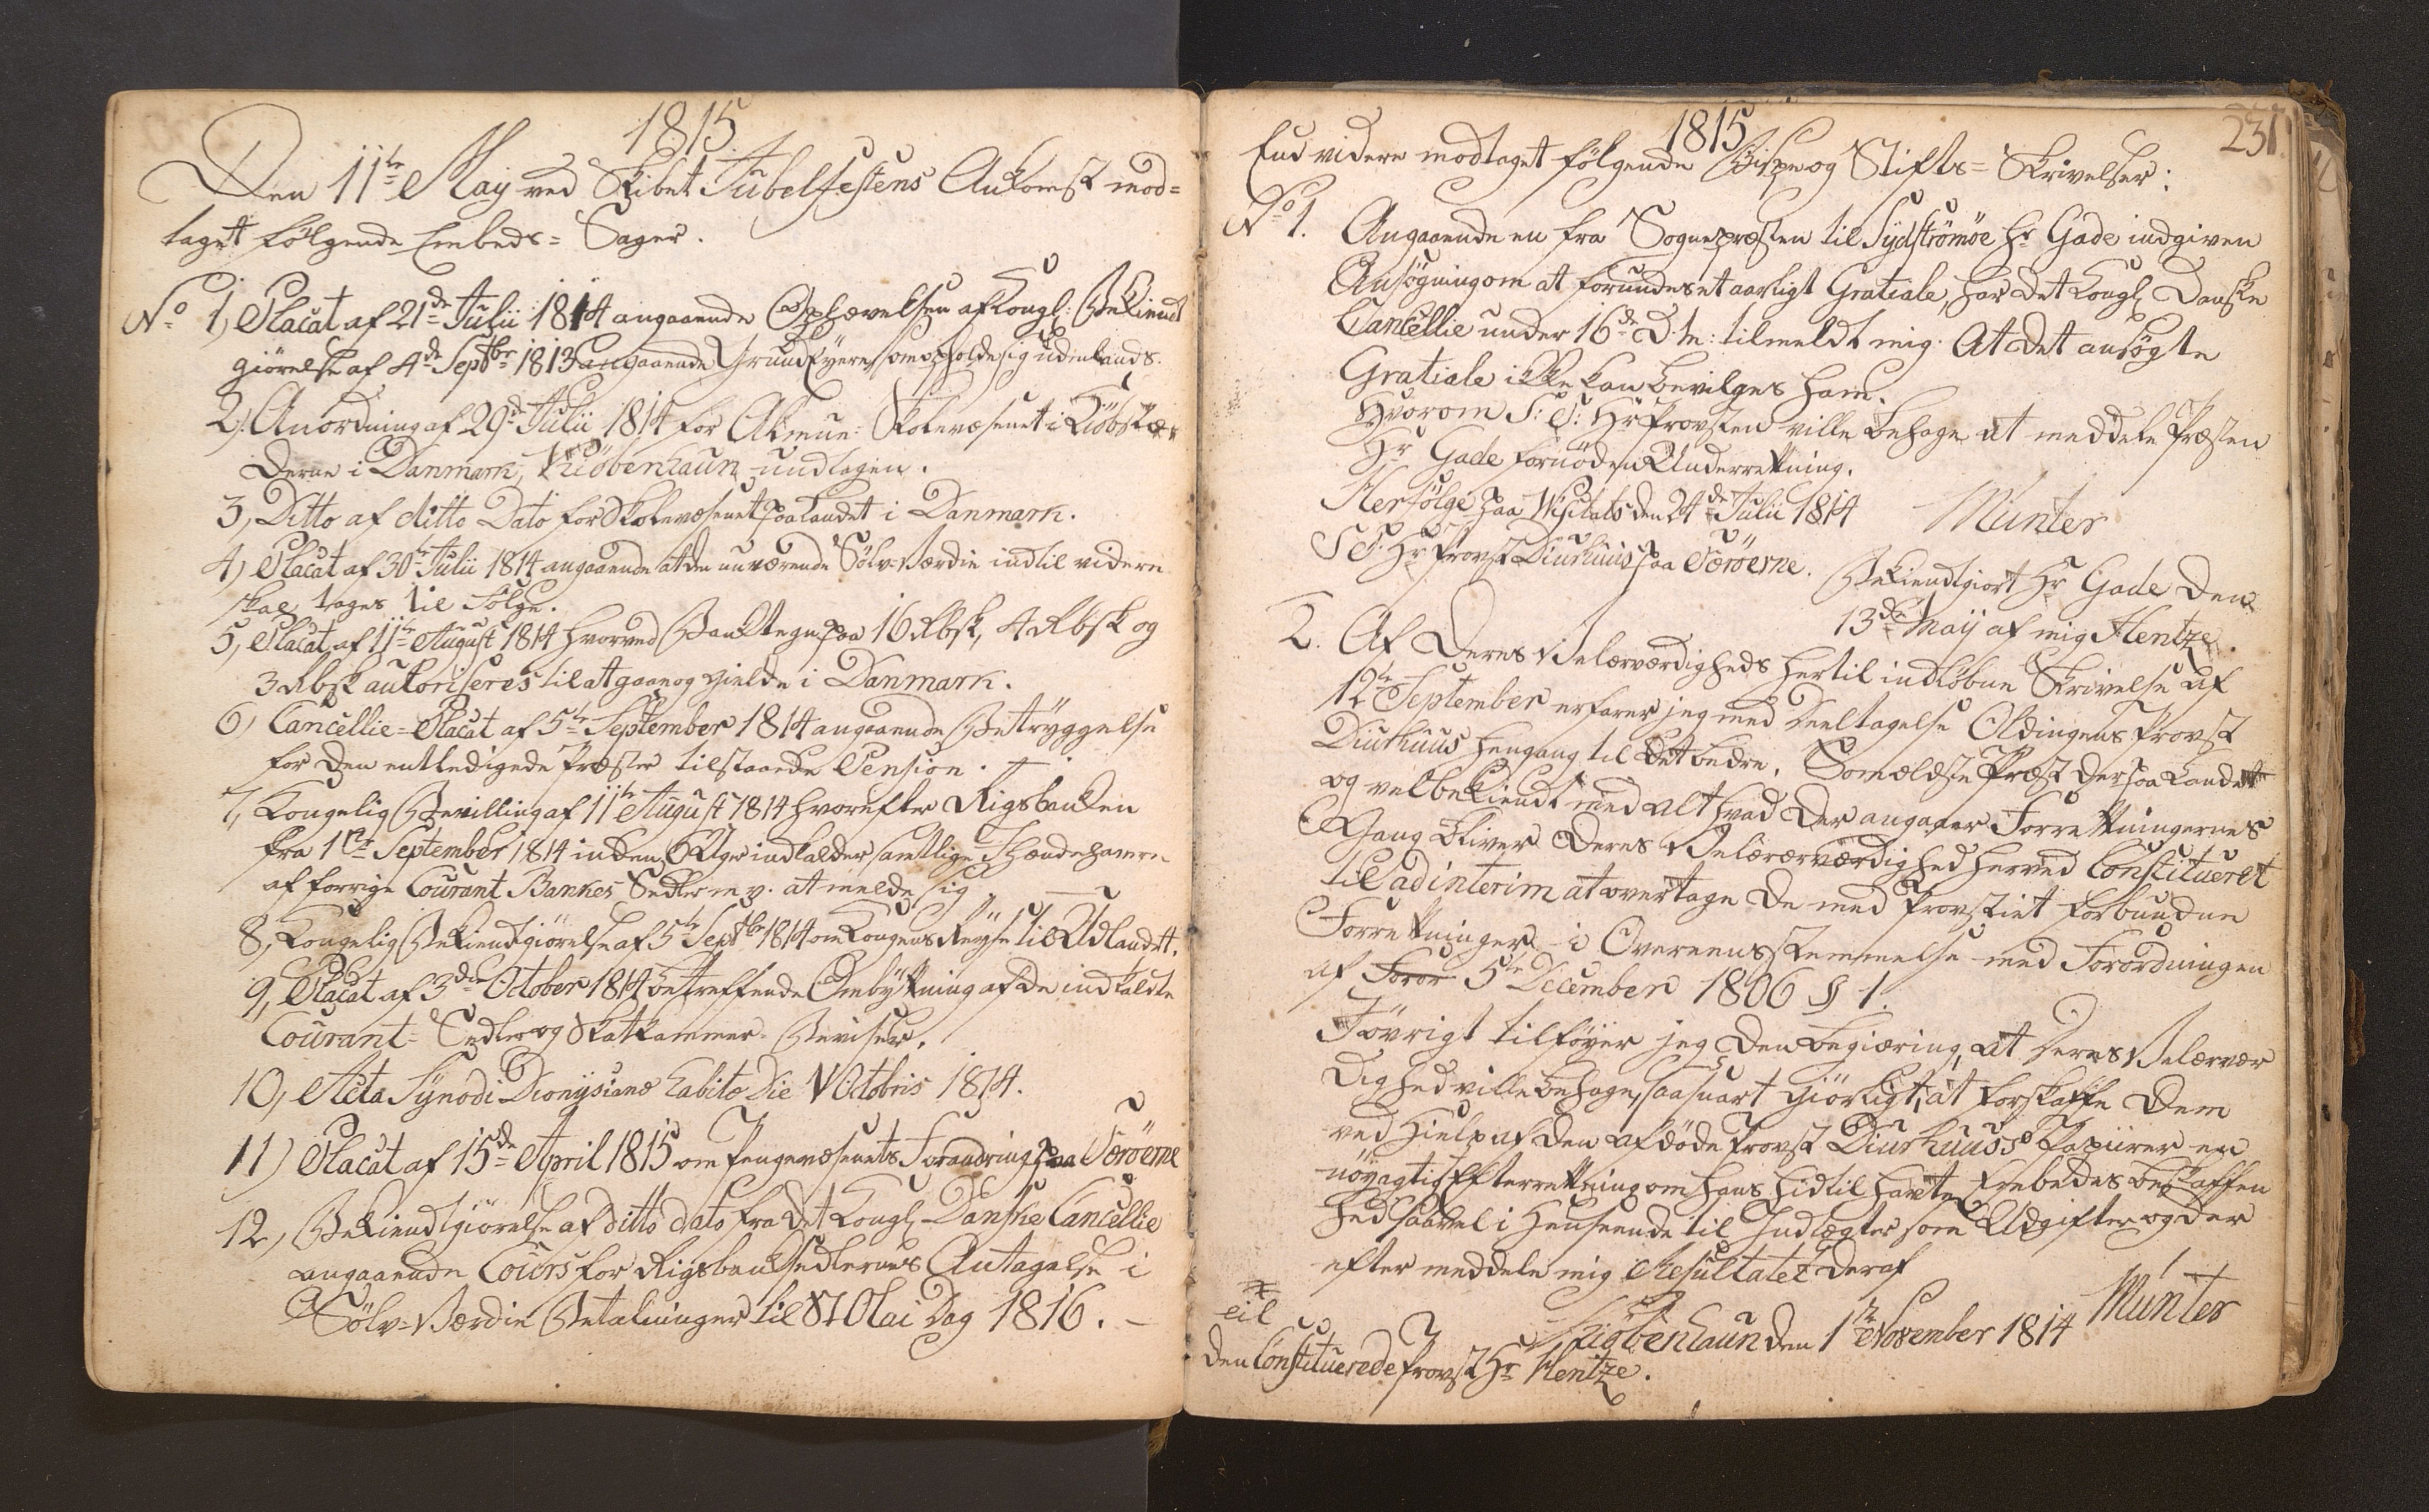 1815.
Den 11te May ved Skibet Jubelfestens Ankomst mod=
taget følgende Embeds= Sager.
No 1, Placat af 21de Julii 1814 angaaende Ophævelsen af Kongl: Bekiendt
giørelse af 4de Septbr 1813 angaaende Grundeyere som opholde sig udenlands.
2). Anordning af 29de Julii 1814 for Almue= Skolevæsenet i Kiøbstæ=
derne i Danmark, Kiøbenhaun undtagen.
3, Ditto af ditto Dato for Skolevæsenet paa Landet i Danmark.
4) Placat af 30te Julii 1814 angaaende at den nuværende Sølv-Værdie indtil videre
skal tages til Følge.
5, Placat af 11te August 1814 hvorved Banktegn paa 16 Rbsk, 4 Rbsk og
3 Rbsk autoriseres til at gaae og gielde i Danmark.
6) Cancellie= Placat af 5te September 1814 angaaende Betryggelse
for den entledigede Præster tilstaaede Pension. +
7, Kongelig Bevilling af 11te August 1814 hvorefter Rigsbanken
fra 1ste September 1814 inden 6 Uger indkalder samtlige Ihændehavere
af forrige Courant Bankes Sedler m. v. at melde sig.
8, Kongelig Bekiendtgiørelse af 5te Septbr 1814 om Kongens Reyse til Udlandet.
9, Placat af 3de October 1814 betreffende Ombytning af de indkaldte
Courant= Sedler og Skatkammer= Beviser.
10, Acta Synodi Dionysianæ habitæ Die V Octobris 1814.
11) Placat af 15de April 1815 om Pengevæsenets Forandring paa Færøerne
12, Bekiendtgiørelse af ditto dato fra det Kongl. Danske Cancellie
angaaende Cours for Rigsbanksedlernes Antagelse i
Sølv-Værdie Betalninger til St Olai Dag 1816. –
231
1815
End videre modtaget følgende Bispe og Stifts= Skrivelser:
No 1. Angaaende en fra Sognepræsten til Sydstrømøe Hr Gade indgiven
Ansøgning om at forundes et aarligt Gratiale, har det Kongl Danske
Cancellie under 16de D. M: tilmeldt mig: At det ansøgte
Gratiale ikke kan bevilges ham.
Hvorom S: T: Hr Provsten ville behage at meddele Præsten
Hr Gade fornøden Underretning.
Herfølge paa Visitats den 24de Julii 1814 Münter
S T. Hr Provst Diurhuus paa Færøerne.
Bekiendtgiort Hr Gade den
13de May af mig Hentze.
2. Af Deres Velærværdigheds hertil indløbne Skrivelse af
12te September erfarer jeg med Deeltagelse Oldingens Provst
Diurhuus Hengang til det bedre. Som ældste Præst der paa Landet
og velbekiendt med alt hvad der angaaer Forretningernes
Gang bliver Deres Velærværdighed herved Constitueret
til ad interim at overtage de med Provstiet forbundne
Forretninger i Overeensstemmelse med Forordningen
af Foror 5te December 1806 § 1.
Iøvrigt tilføyer jeg den begiæring, at Deres Velærvær
dighed ville behage, saa snart giørligt, at forskaffe Dem
ved Hielp af den afdøde Provst Diurhuuss Papiirer en
nøyagtig Efterretning om hans hidtil havte Embedes beskaffen
hed saavel i Henseende til Indtægter som Udgifter og der
efter meddele mig Resultatet deraf
Kiøbenhaun den 1ste November 1814 Münter
til
den Constituerede Provst Hr Hentze.